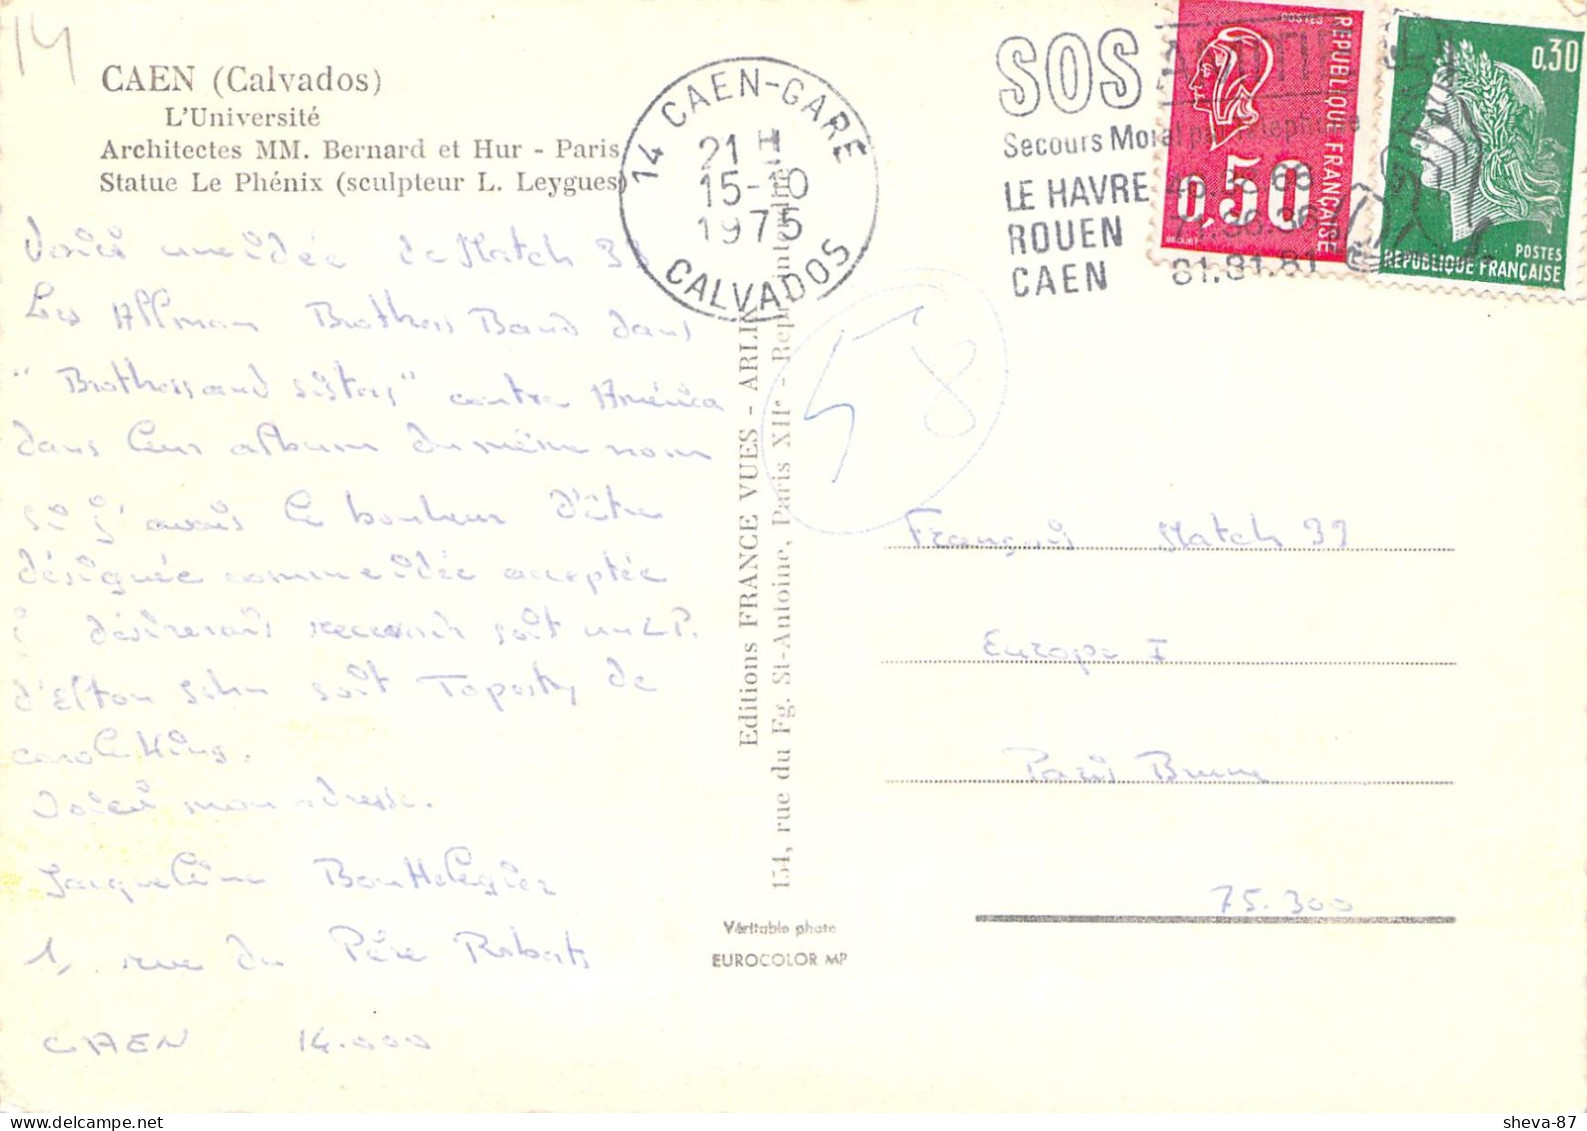 14
CAEN (Calvados)
L'Université
Architectes MM. Bernard et Hur - Paris
Statue Le Phénix (sculpteur L. Leygues)
14 CAEN-GARE
21 H
15-10
1975
CALVADOS
SOS AMITIE
Secours Moral par téléphone
LE HAVRE
ROUEN 71.36.36
CAEN 81.81.81
POSTES
REPUBLIQUE FRANÇAISE
0,50
0,30
POSTES
REPUBLIQUE FRANÇAISE
Voici une idée de Match 39
Les Allman Brothers Band dans
"Brothers and sisters" contre América
dans leur album du même nom
si j'avais le bonheur d'être
désignée comme idée acceptée
je désirerais recevoir soit un LP.
d'Elton John soit Tapestry de
carole King.
Voici mon adresse.
Jacqueline
1, rue du Père Roberts
CAEN 14.000
Editions FRANCE VUES -
154, rue du Fg. St-Antoine, Paris XIIe - interdite
Véritable photo
EUROCOLOR MP
58
François Match 39
Europe 1
Paris Brune
75.300
sheva-87